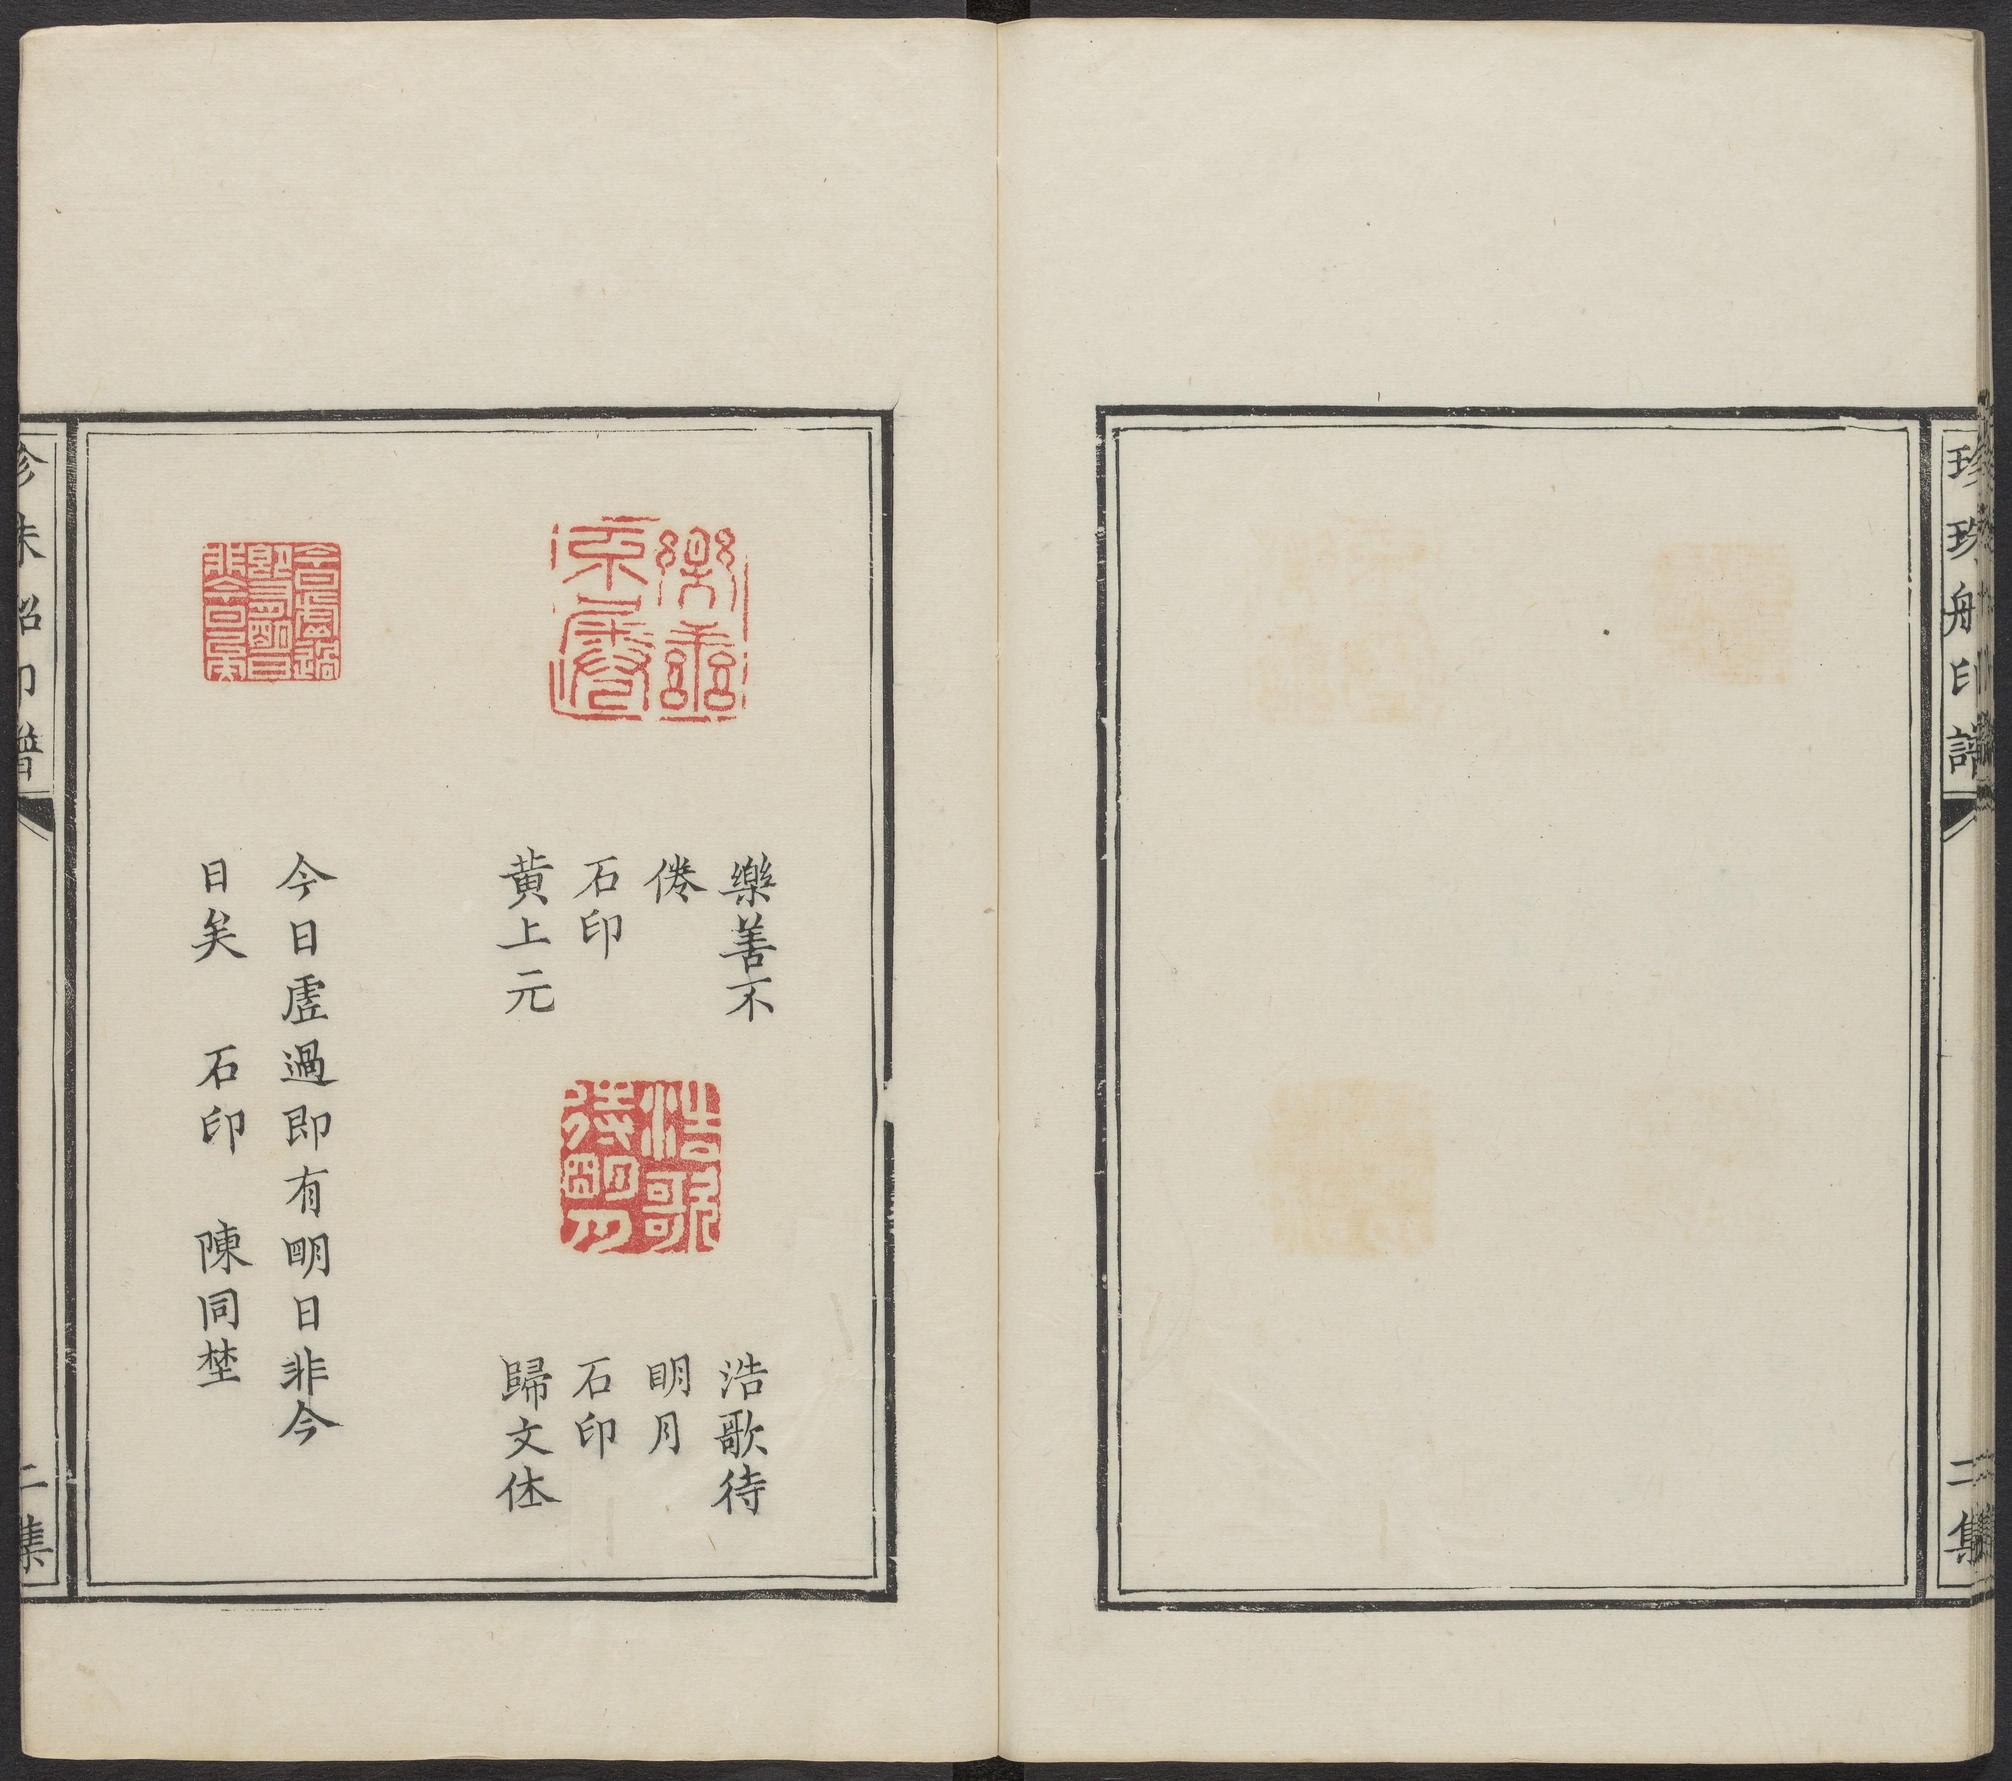 珍珠船印譜
二集
樂善不
倦
石印
黄上元
浩歌待
明月
石印
歸文休
今日虗過即有明日非今
日矣 石印 陳同埜
珍珠船印譜
二集